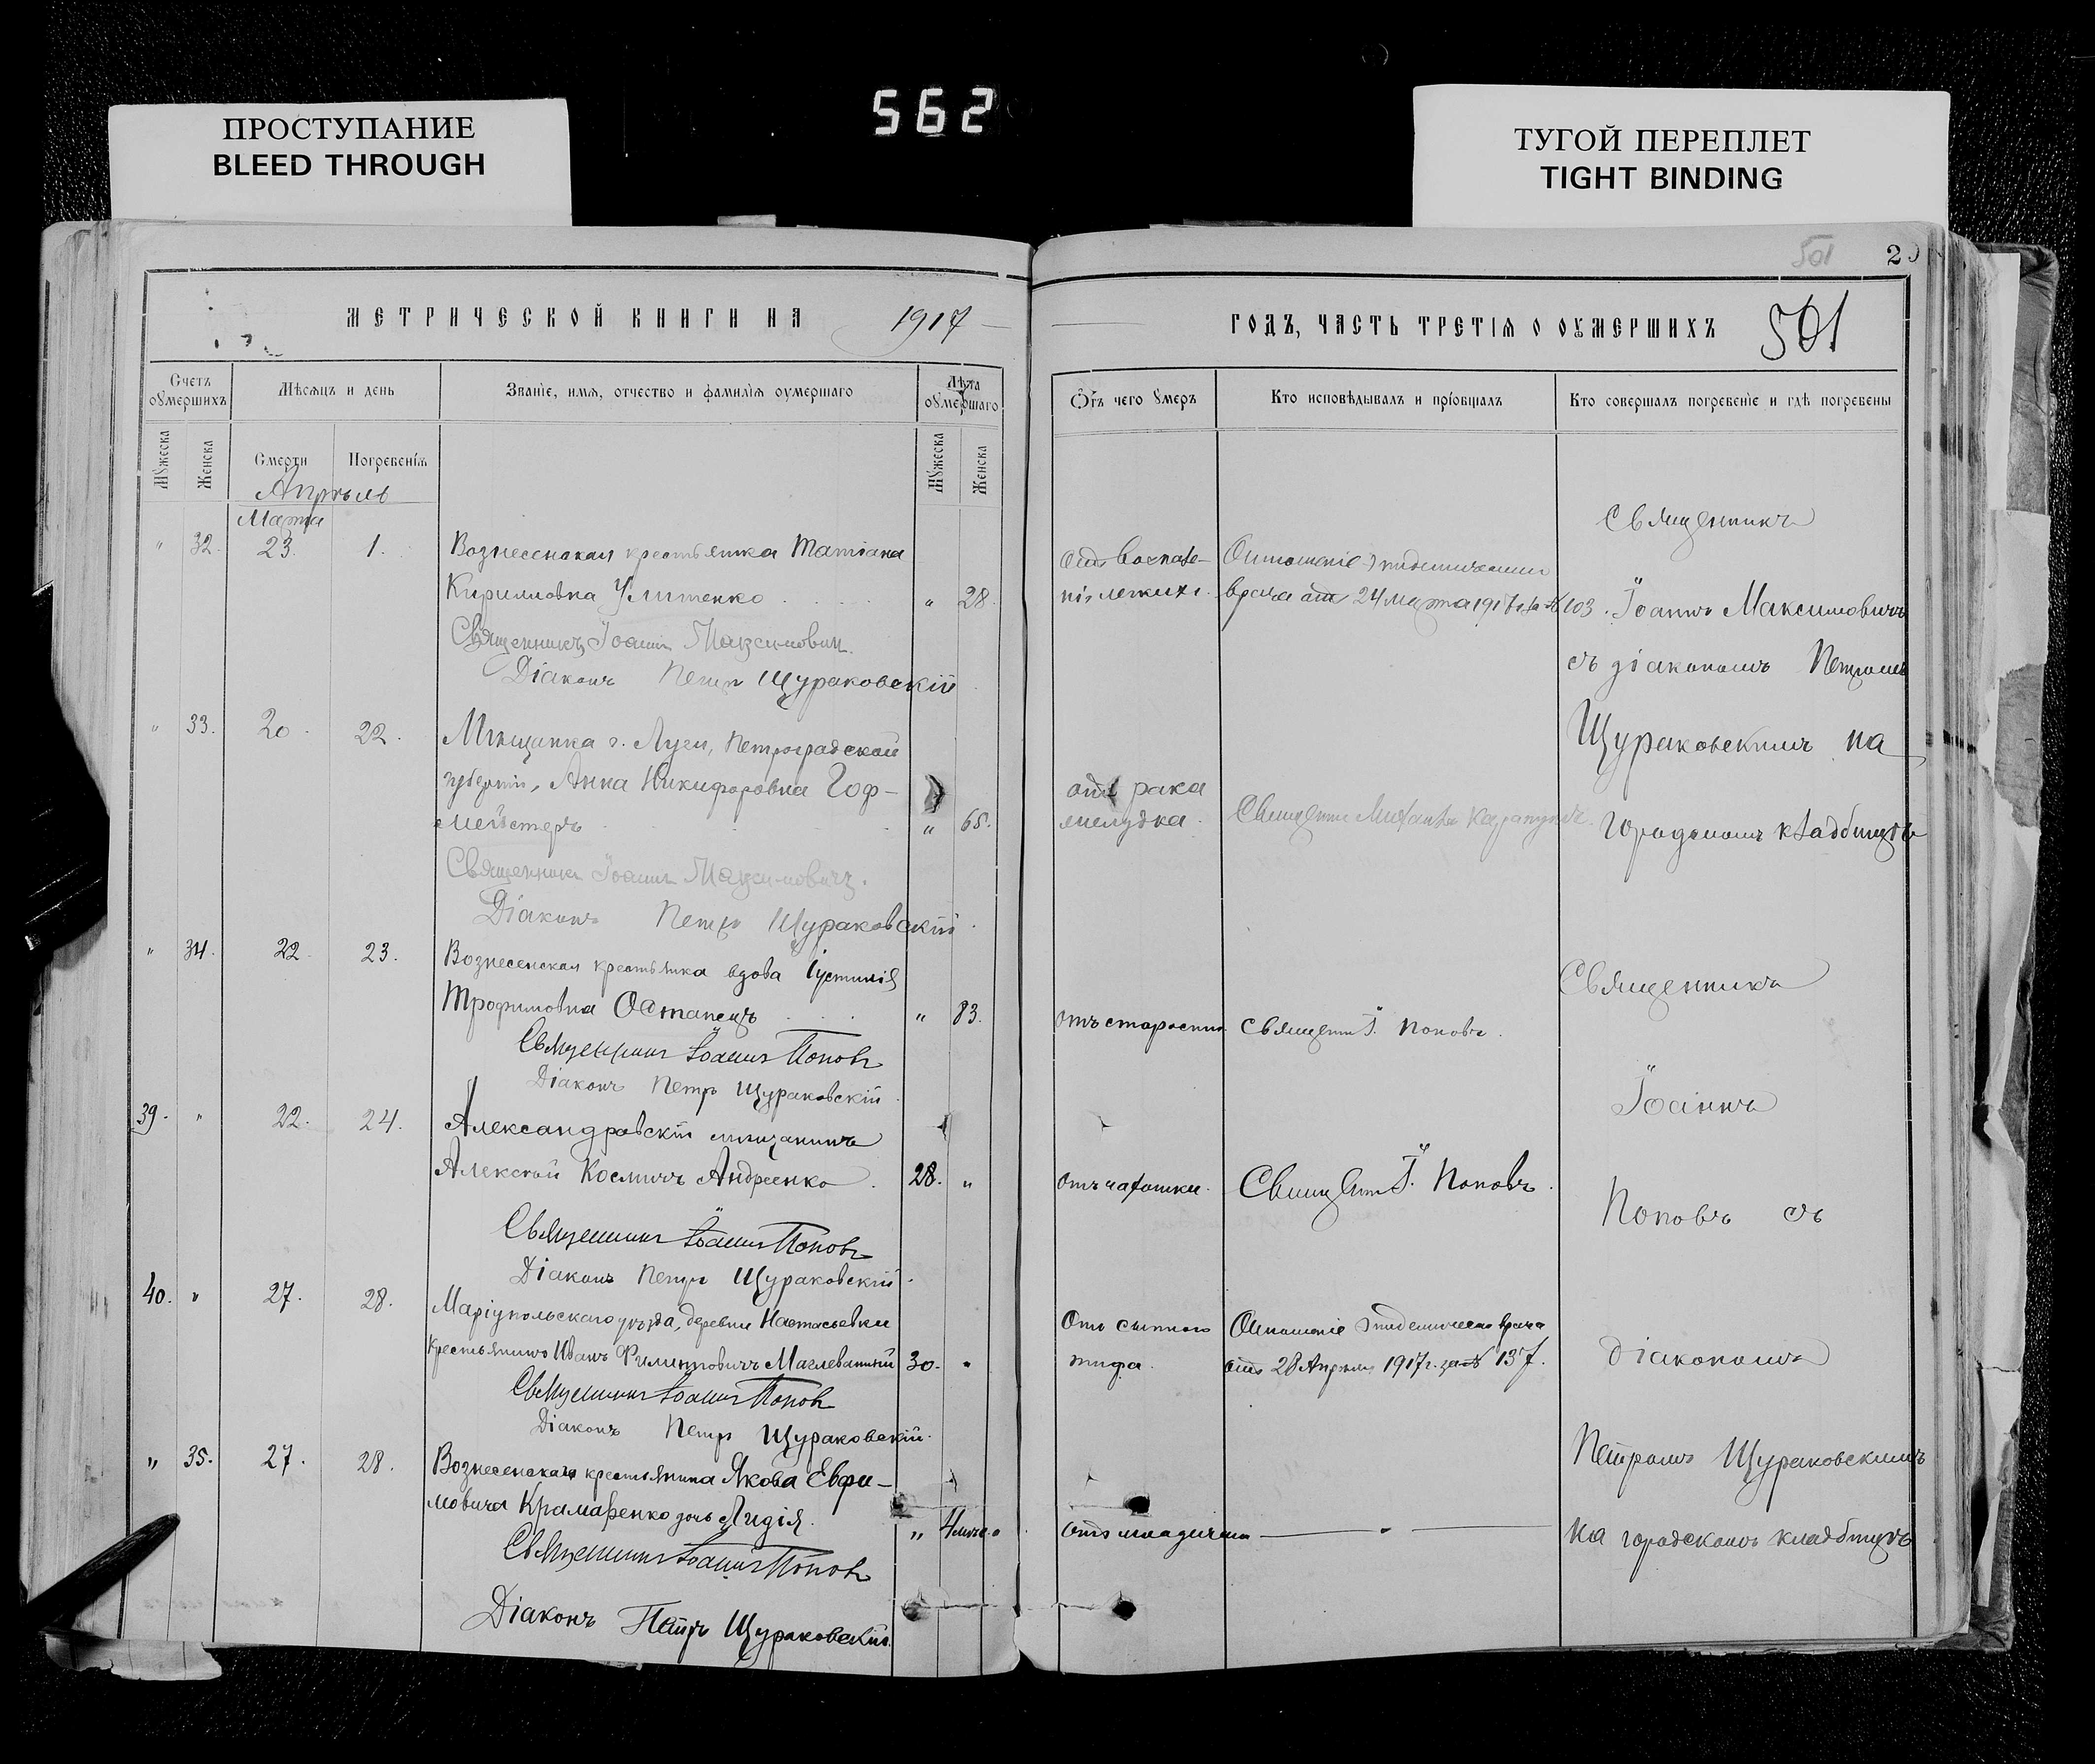 562
ПРОСТУПАНИЕ
BLEED THROUGH
ТУГОЙ ПЕРЕПЛЕТ
TIGHT BINDING
501
МЕТРИЧЕСКОЙ КНИГИ НА 1917
ГОДЪ, ЧАСТЬ ТРЕТІЯ О ОУМЕРШИХЪ 501
Счетъ оумершихъ
Мѣсяцъ и день
Званіе, имя, отчество и фамилія оумершаго
Лѣта оумершаго
Отъ чего умеръ
Кто исповѣдывалъ и пріобщалъ
Кто совершалъ погребеніе и гдѣ погребены
Мужеска
Женска
Смерти
Погребенія
Мужеска
Женска
Апрѣль
Марта
" 32. 23. 1. Вознесенская крестьянка Татіана
Кирилловна " 28.
Священникъ Іоаннъ Максимович.
Діаконъ Петръ Щураковскій
Отъ воспале-
нія легкихъ.
Отношеніе Эпидемическаго
врача отъ 24 марта 1917 г. за № 103.
Священникъ
Іоаннъ Максимовичъ
съ діакономъ Петромъ
Щураковскимъ на
городскомъ кладбищѣ
" 33. 20. 22. Мѣщанка г. Луги, Петроградской
губерніи, Анна Никифоровна Гоф-
мейстеръ " 65.
Священникъ Іоаннъ Максимовичъ.
Діаконъ Петръ Щураковскій.
отъ рака
желудка.
Священникъ
" 34. 22. 23. Вознесенская крестьянка вдова Іустинія
Трофимовна Остапецъ " 83.
Священникъ Іоаннъ Поповъ
Діаконъ Петръ Щураковскій
отъ старости.
Священн. І. Поповъ.
Священникъ
Іоаннъ
Поповъ съ
діакономъ
Петромъ Щураковскимъ
на городскомъ кладбищѣ
39. " 22. 24. Александровскій мѣщанинъ
Алексѣй Космичъ Андреенко. 28. "
Священникъ Іоаннъ Поповъ
Діаконъ Петръ Щураковскій.
отъ чахотки.
Священн. І. Поповъ.
40. " 27. 28. Маріупольскаго уѣзда, деревни Настасьевки
крестьянинъ Иванъ Филипповичъ 30. "
Священникъ Іоаннъ Поповъ
Діаконъ Петръ Щураковскій.
Отъ сыпного
тифа.
Отношеніе Эпидемическаго врача
отъ 28 Апрѣля 1917 г. за № 137.
" 35. 27. 28. Вознесенскаго крестьянина Якова Евфи-
мовича Крамаренко дочь Лидія. " 4
Священникъ Іоаннъ Поповъ
Діаконъ Петръ Щураковскій.
отъ